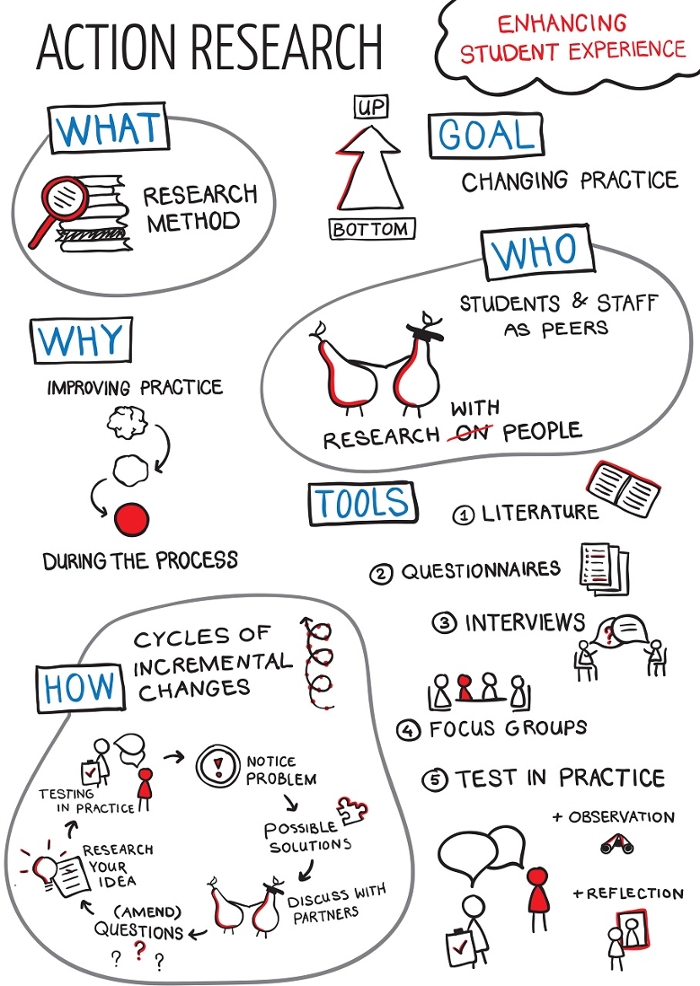 ACTION RESEARCH
ENHANCING
STUDENT EXPERIENCE
WHAT
RESEARCH
METHOD
UP
BOTTOM
GOAL
CHANGING PRACTICE
WHO
STUDENTS & STAFF
AS PEERS
WITH
RESEARCH ON PEOPLE
WHY
IMPROVING PRACTICE
DURING THE PROCESS
TOOLS
1 LITERATURE
2 QUESTIONNAIRES
3 INTERVIEWS
?
4 FOCUS GROUPS
5 TEST IN PRACTICE
+ OBSERVATION
+ REFLECTION
HOW
CYCLES OF
INCREMENTAL
CHANGES
!
NOTICE
PROBLEM
POSSIBLE
SOLUTIONS
DISCUSS WITH
PARTNERS
(AMEND)
QUESTIONS
? ? ?
RESEARCH
YOUR
IDEA
TESTING
IN PRACTICE